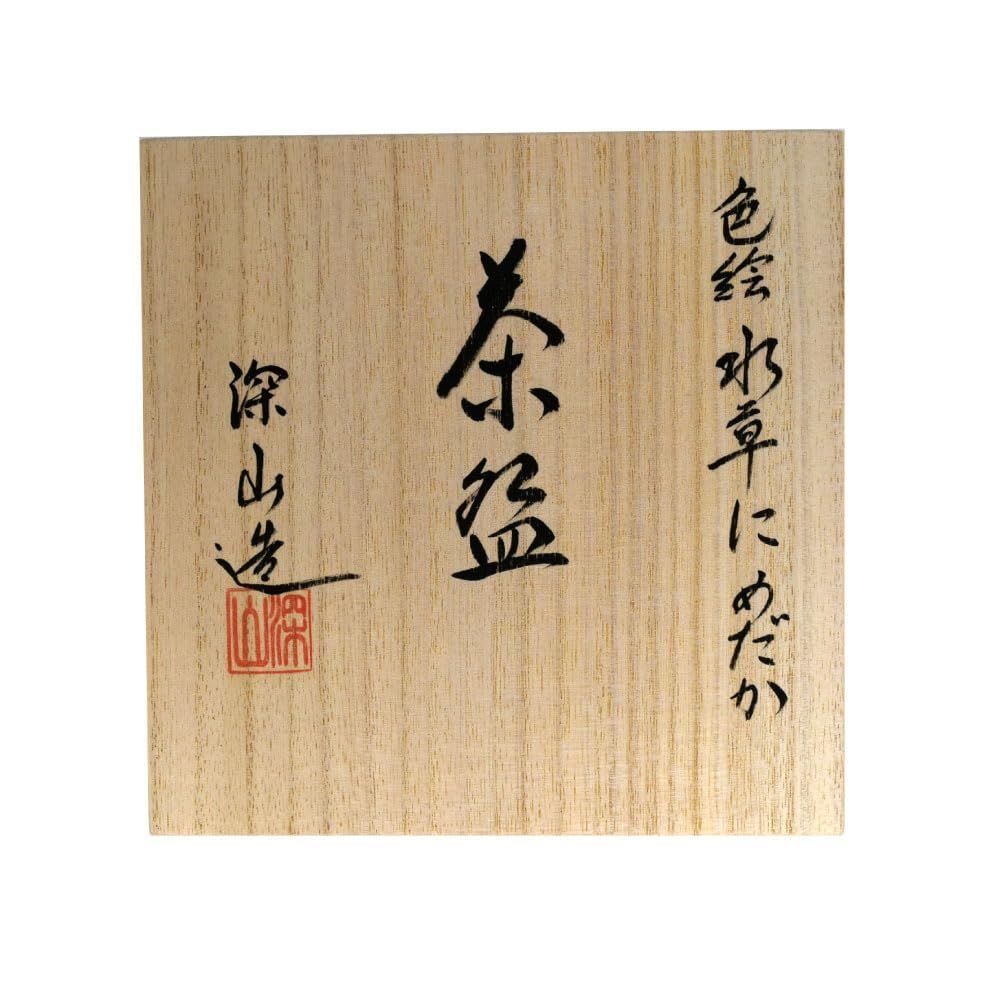 色絵 水草にめだか
茶盌
深山造
深山